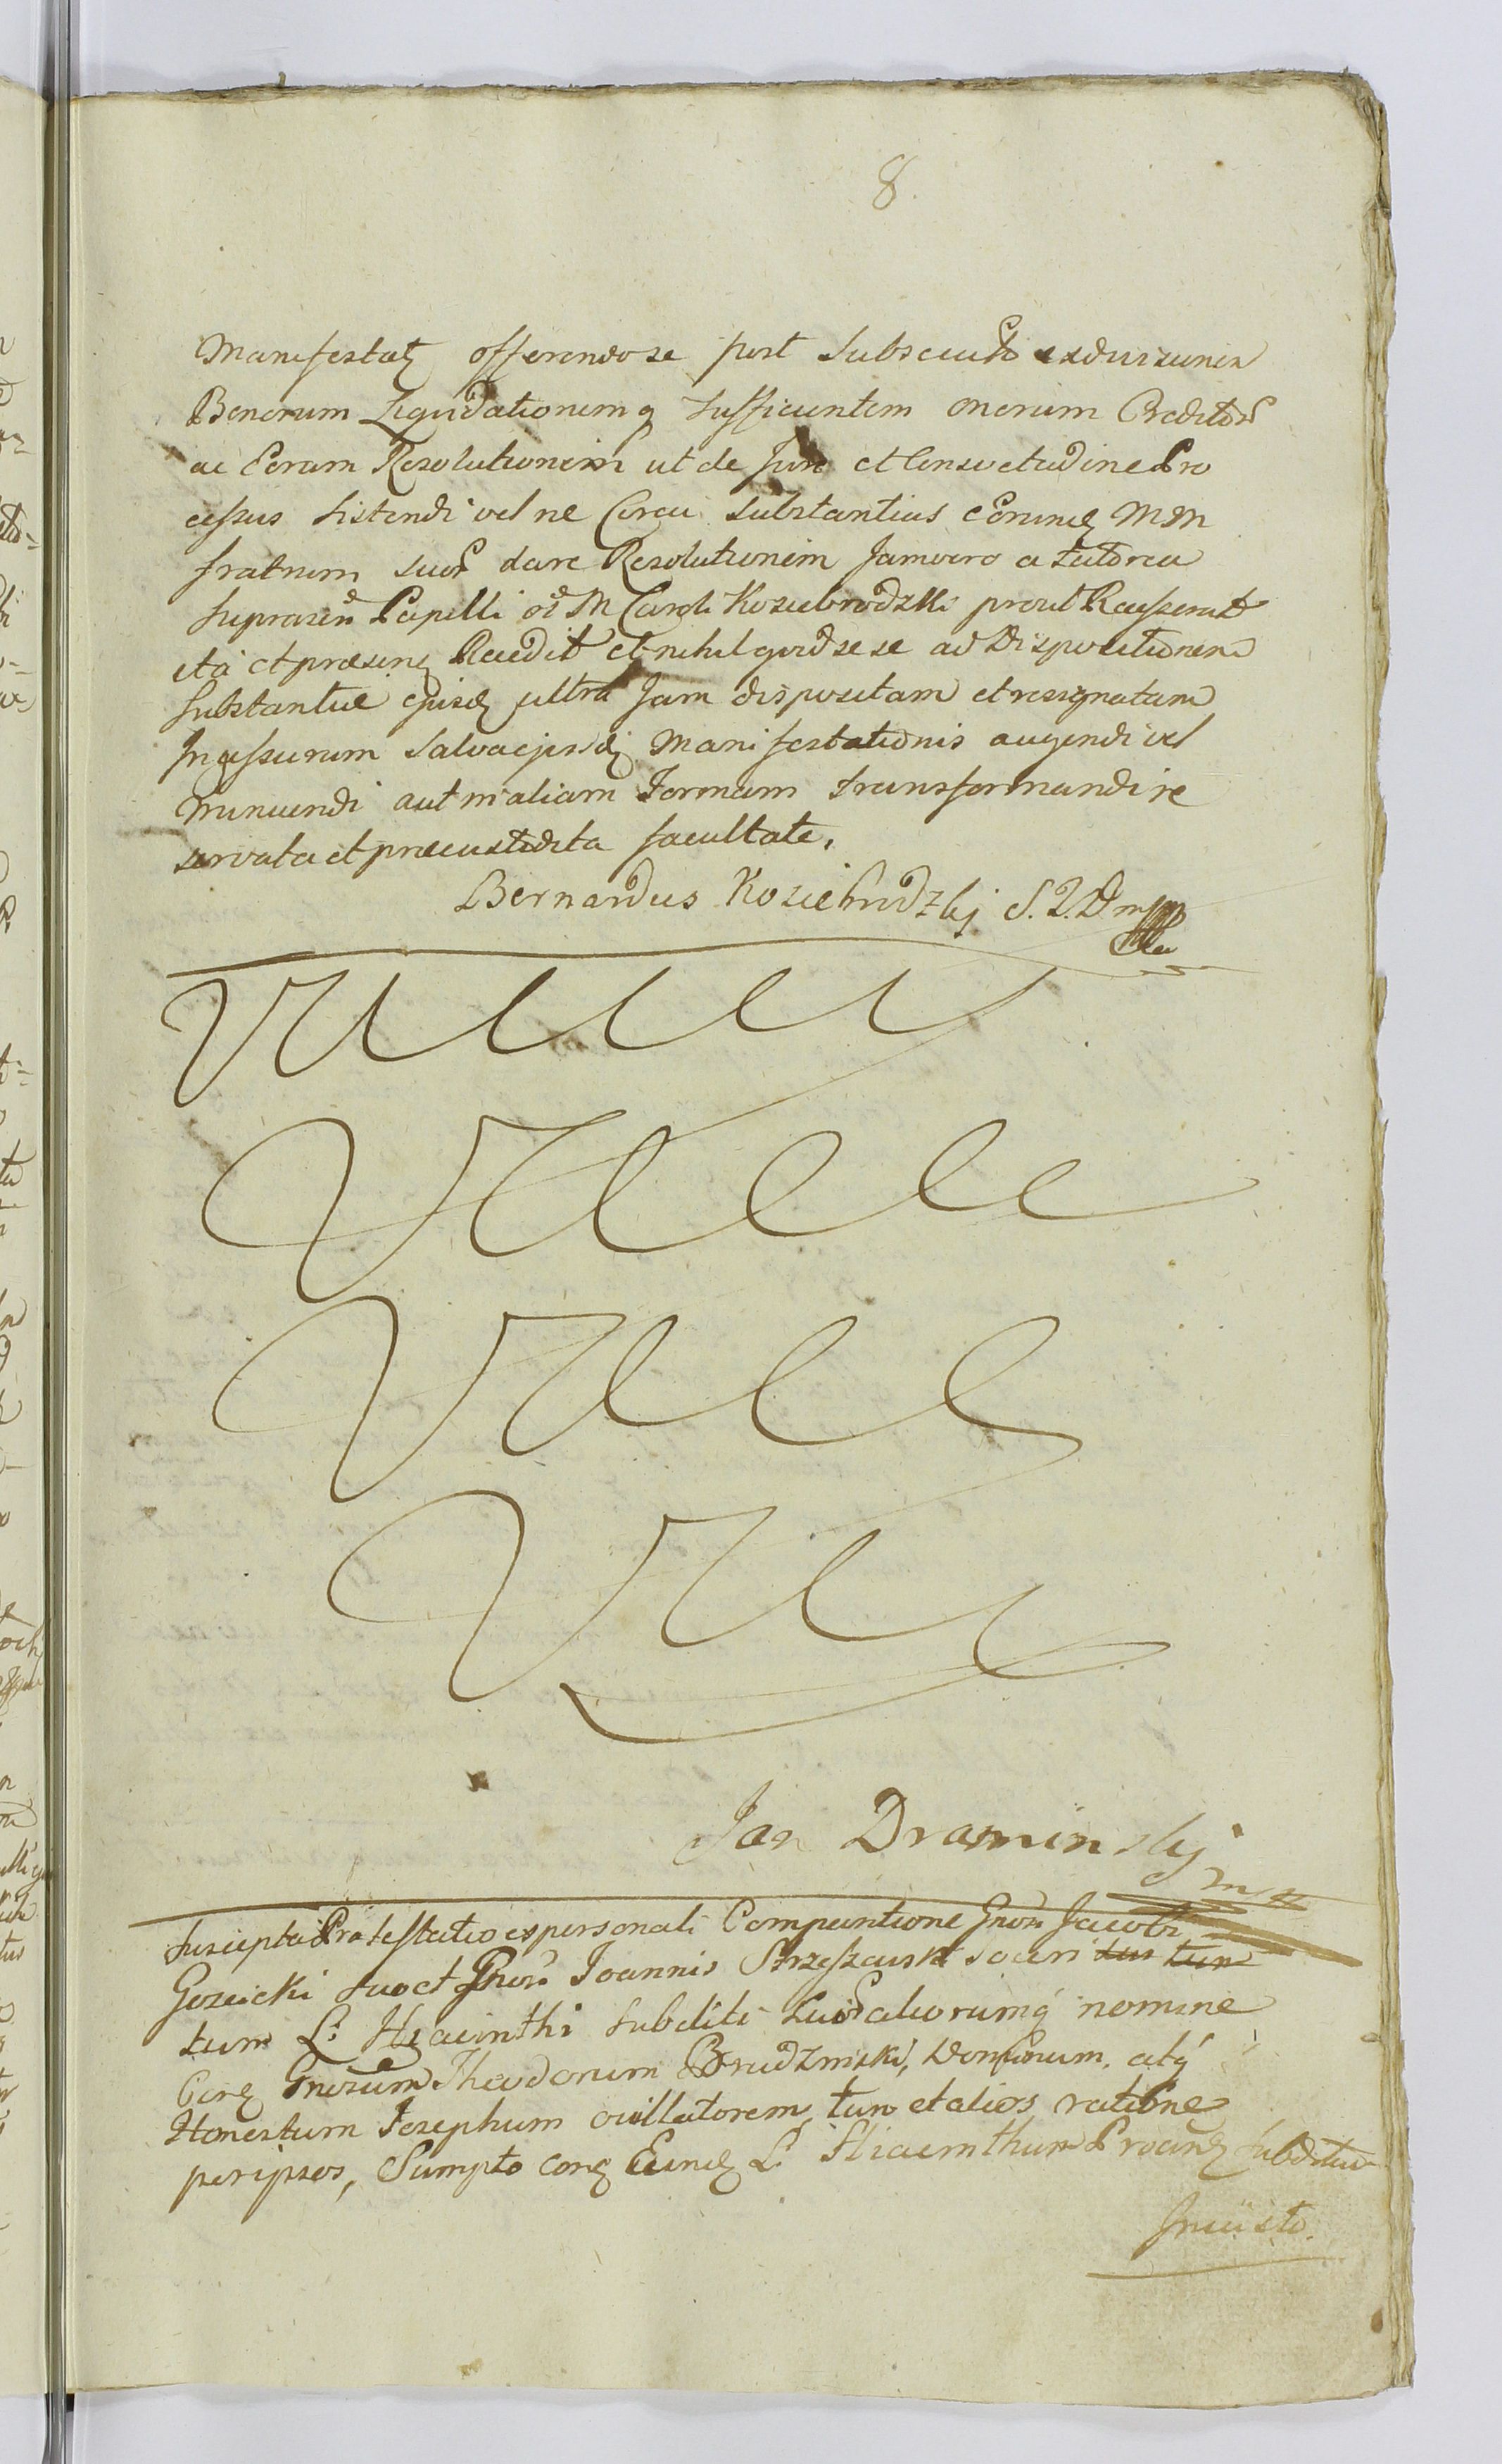 8.
Manifestatq offerendo se post subsecuto exdivisionem
Bonorum Liquidationemq sufficientem onerum Creditor
ac Eorum Resolutionem ut de Jure et Consvetudine Pro
cessus sistendi vel ne Circa substantias Eorundq MM
fratrum suor dare Resolutionem Jamvero a tutorea
suprascr Pupilli M Caroli Koziebrodzki prout Recesserat
ita et præsenq Recedit et nihil quid se se ad Dispositionem
substantiæ ejusdq ultra Jam dispositam et resignatam
Ingessurum Salva ejusdq Manifestationis augendi vel
minuendi aut in aliam Formam transformandi re
servata et præcustodita facultate.
Bernardus Koziebrodzkj S. P. D mp
Jan Draminskj
mp
Suscepta Protestatio ex personali Comparitione Gnor Jacobi
Gozeicki suo et Gnor Joannis soceri sui tum
tum L: Hyacinthi subditi suor aliorumq nomine
Conq Gnosum Theodorum Brudzinski, Dominum, atq
Honestum Josephum ovillatorem, tum et alios ratione
per ipsos, Sumpto conq Eundq L: Hiacinthum Procunq subditum
Injusto.